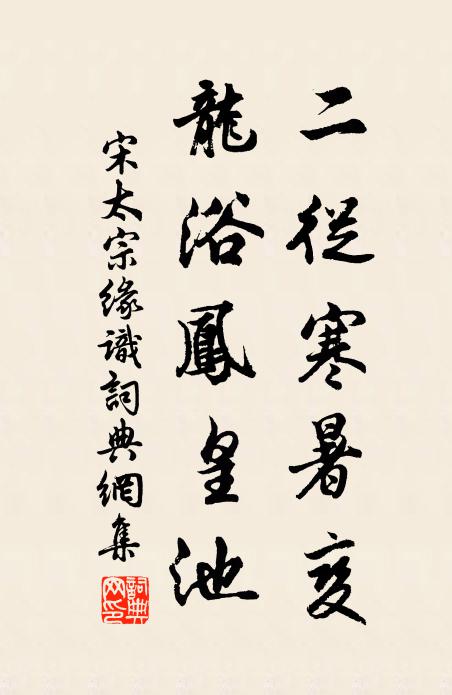 二從寒暑變
龍浴鳳皇池
宋太宗緣識詞典網集
詞典
网印